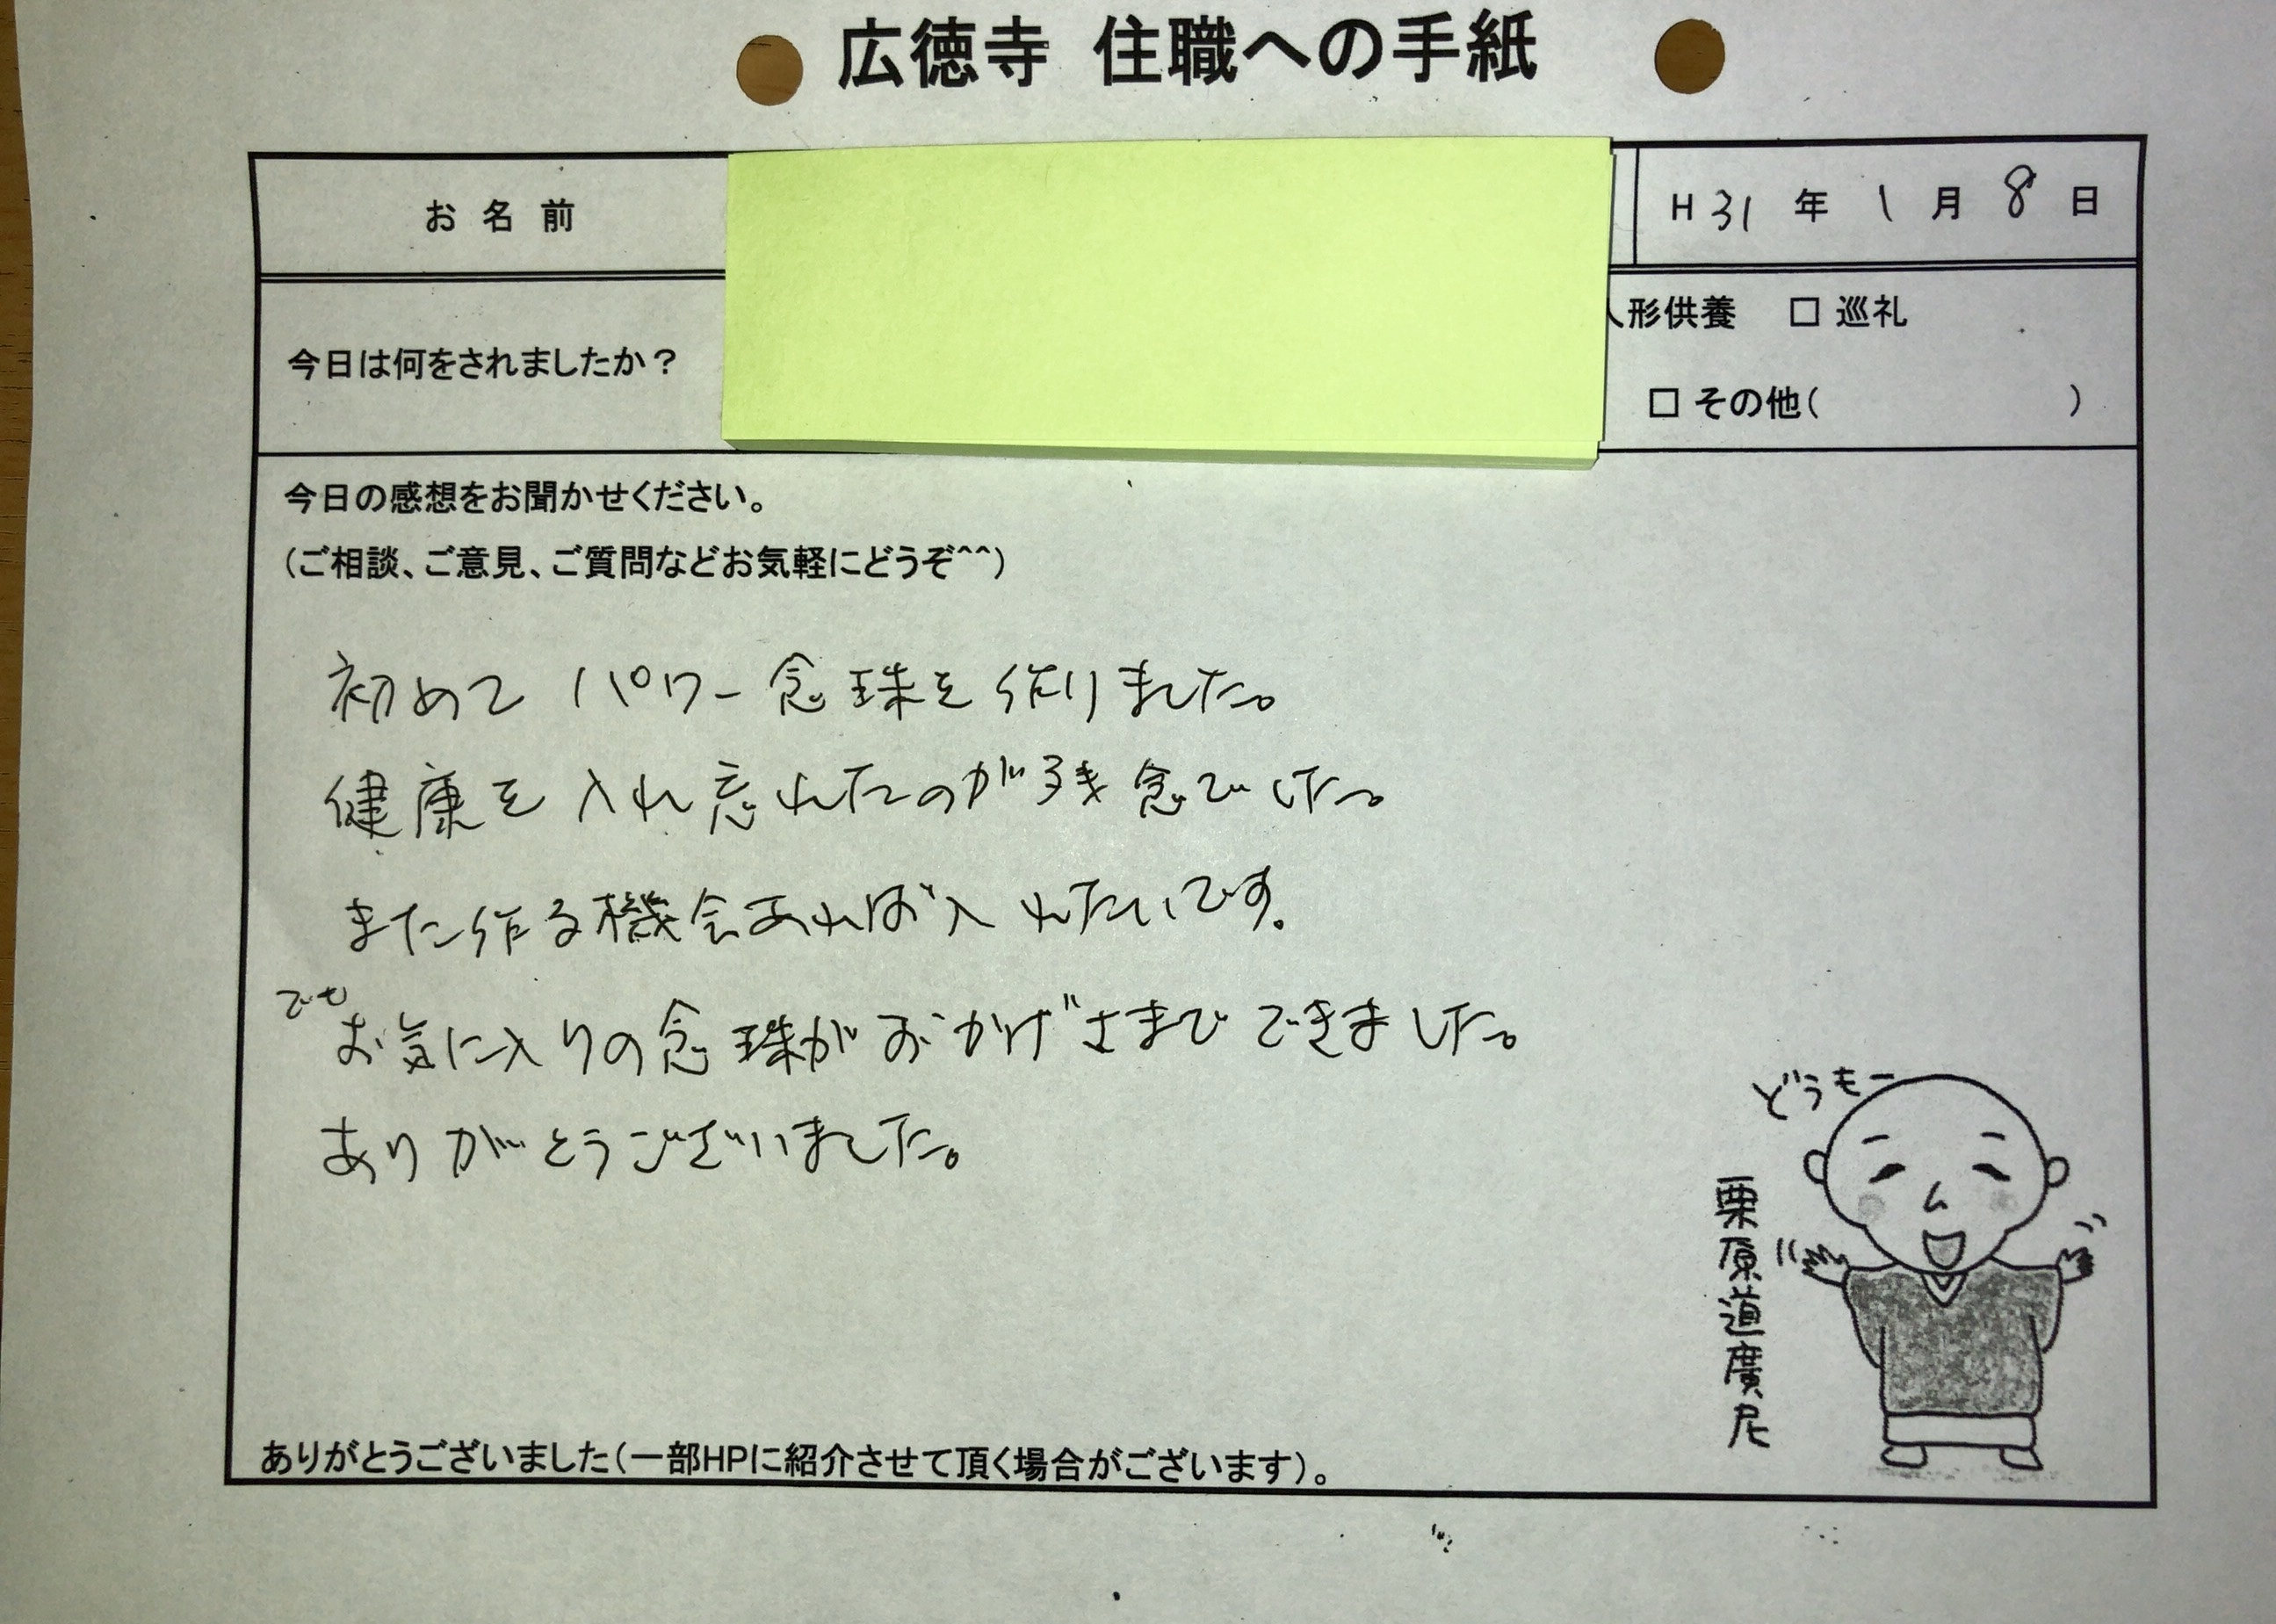 広徳寺 住職への手紙
お名前
H 31 年 1 月 8 日
今日は何をされましたか？
形供養 □ 巡礼
□ その他( )
今日の感想をお聞かせください。
(ご相談、ご意見、ご質問などお気軽にどうぞ^^)
初めて パワー念珠を作りました。
健康を入れ忘れたのが残念でした。
また作る機会あれば入れたいです。
でも
お気に入りの念珠がおかげさまで できました。
ありがとうございました。
どうもー
栗原道廣尼
ありがとうございました(一部HPに紹介させて頂く場合がございます)。